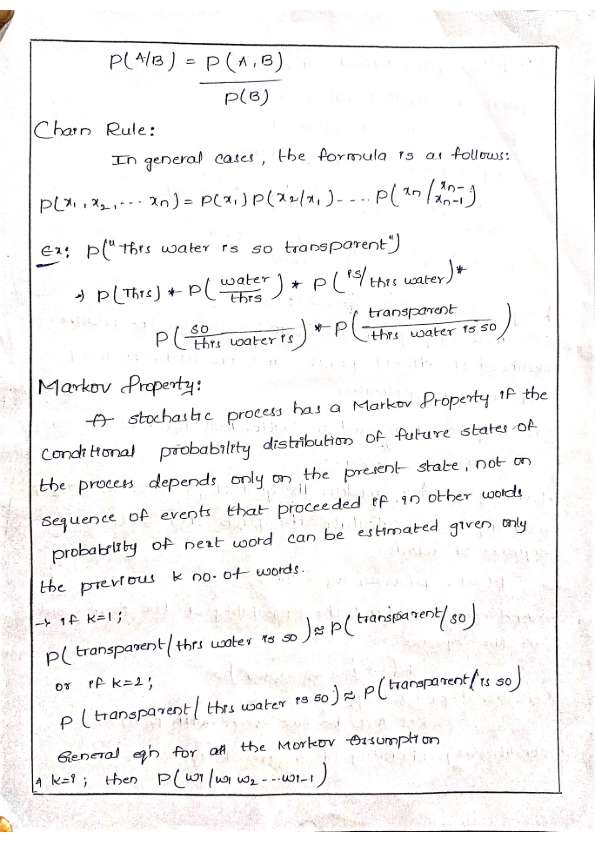 P(A/B) = P(A,B)
P(B)
Chain Rule:
In general cases, the formula is as follows:
P(x1, x2, ... xn) = P(x1) P(x2/x1) - .... P(xn/xn-1)
Ex: P("This water is so transparent")
→ P(This) * P(water/this) * P(is/this water) *
P(so/this water is) * P(transparent/this water is so)
Markov Property:
A stochastic process has a Markov Property if the
conditional probability distribution of future states of
the process depends only on the present state, not on
sequence of events that proceeded if in other words
probability of next word can be estimated given only
the previous k no. of words.
→ if k=1;
P(transparent/this water is so) ≈ P(transparent/so)
or if k=2;
P(transparent/this water is so) ≈ P(transparent/is so)
General eqn for all the Markov Assumption
k=i; then P(wi/w1 w2 ---wi-1)